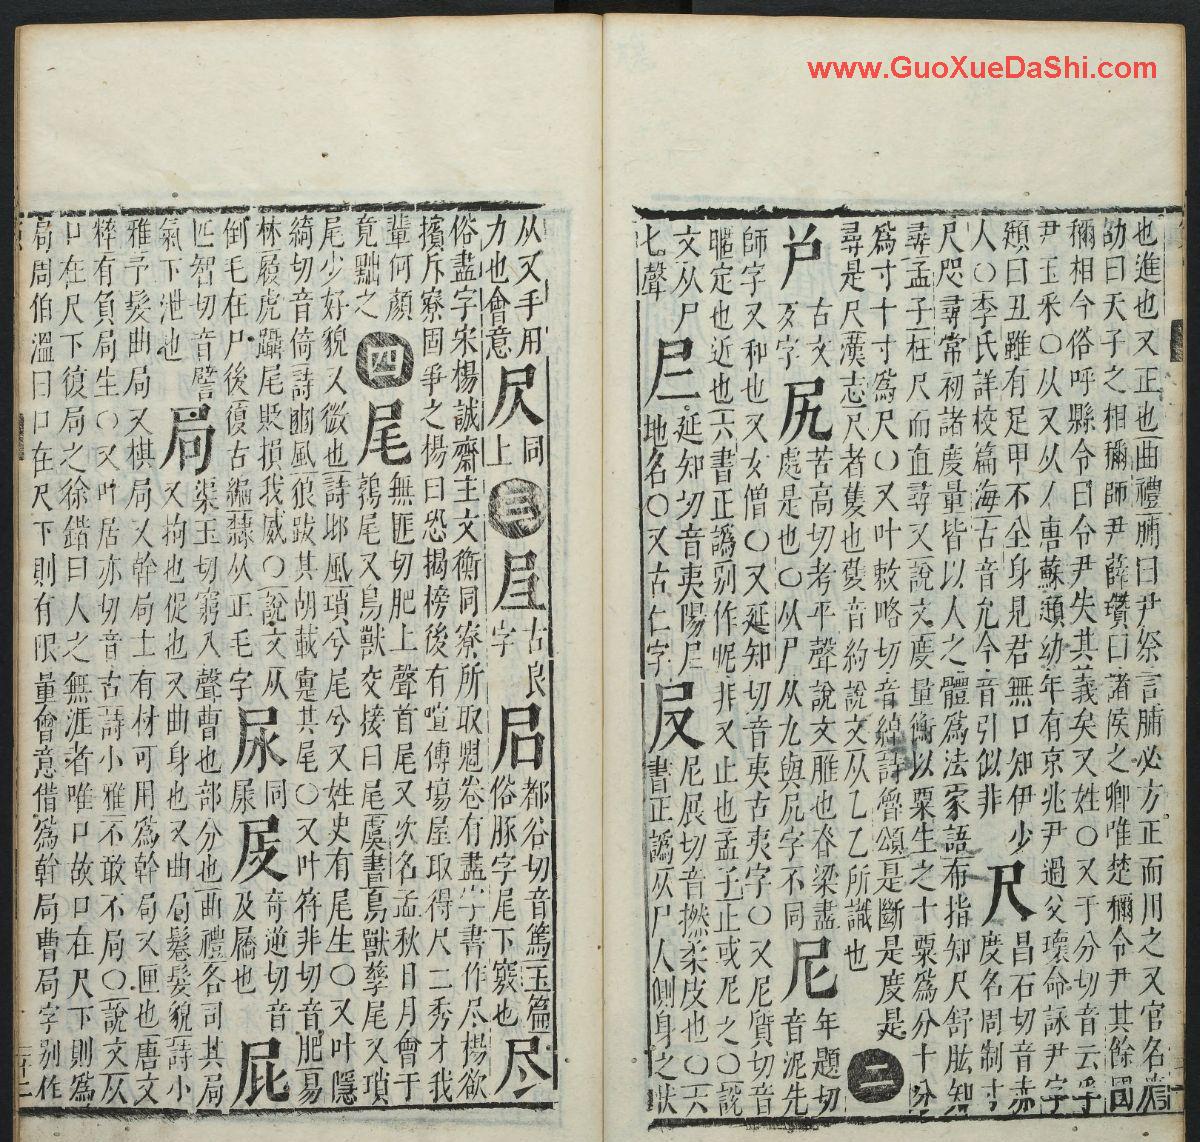 www.GuoXueDaShi.com
也進也又正也曲禮脯曰尹祭言脯必方正而用之又官名應
劭曰天子之相稱師尹薛瓚曰諸侯之卿唯楚稱令尹其餘國
稱相今俗呼縣令曰令尹失其義矣又姓〇又于分切音云孚
尹玉采〇从又从人唐蘇頲幼年有京兆尹過父瓌命詠尹字
頲曰丑雖有足甲不全身見君無口知伊少 尺 昌石切音赤
人〇李氏詳校篇海古音允今音引似非 度名周制寸
尺咫尋常仞諸度量皆以人之體爲法家語布指知尺舒肱知
尋孟子枉尺而直尋又說文度量衡以粟生之十粟爲分十分
爲寸十寸爲尺〇又叶敕略切音綽詩魯頌是斷是度是
尋是尺漢志尺者蒦也蒦音約說文从乙乙所識也 二
户 古文歹字 尻 苦高切考平聲說文脽也脊梁盡
處是也〇从尸从九與凥字不同 尼 年題切音泥先
師字又和也又女僧〇又延知切音夷古夷字〇又尼質切音
暱定也近也六書正譌別作昵非又止也孟子止或尼之〇說
文从尸 𡰥 延知切音夷陽𡰥 尼展切音撚柔皮也〇六
七聲 地名〇又古仁字 𡰫 書正譌从尸人側身之狀
从又手用 𡰫 同 三 𡰪 古良 𡰪 都谷切音篤玉篇 尽
力也會意 上 字 俗豚字尾下竅也
俗盡字宋楊誠齋主文衡同寮所取魁卷有盡字書作尽楊欲
擯斥寮固爭之楊曰恐揭榜後有喧傳場屋取得尺二秀才我
輩何顏 四 尾 無匪切肥上聲首尾又次名孟秋日月會于
竟黜之 鶉尾又鳥獸交接曰尾虞書鳥獸孳尾又瑣
尾少好貌又微也詩邶風瑣兮尾兮又姓史有尾生〇又叶隱
綺切音倚詩豳風狼跋其胡載疐其尾〇又叶符非切音肥易
林履虎躡尾貶損我威〇說文从 尿 同 屐 奇逆切音 屁
倒毛在尸後復古編隸从正毛字 㞙 及屩也
匹智切音譬 局 渠玉切窮入聲曹也部分也曲禮各司其局
氣下泄也 又拘也促也又曲身也又曲局鬈髮貌詩小
雅予髮曲局又棋局又幹局士有材可用爲幹局又匣也唐文
粹有負局生〇又叶居亦切音古詩小雅不敢不局〇說文从
口在尺下復局之徐鍇曰人之無涯者唯口故口在尺下則爲
局周伯溫曰口在尺下則有限量會意借爲幹局曹局字别作